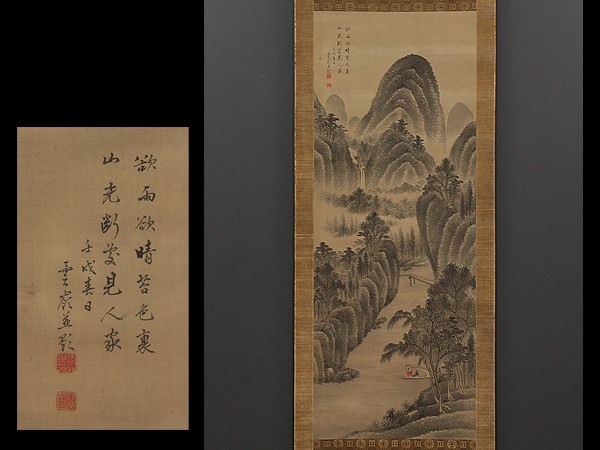 欲雨欲晴苔色裏
山光断處見人家
壬戌春日
雲嶺並題
欲雨欲晴苔色裏
山光断處見人家